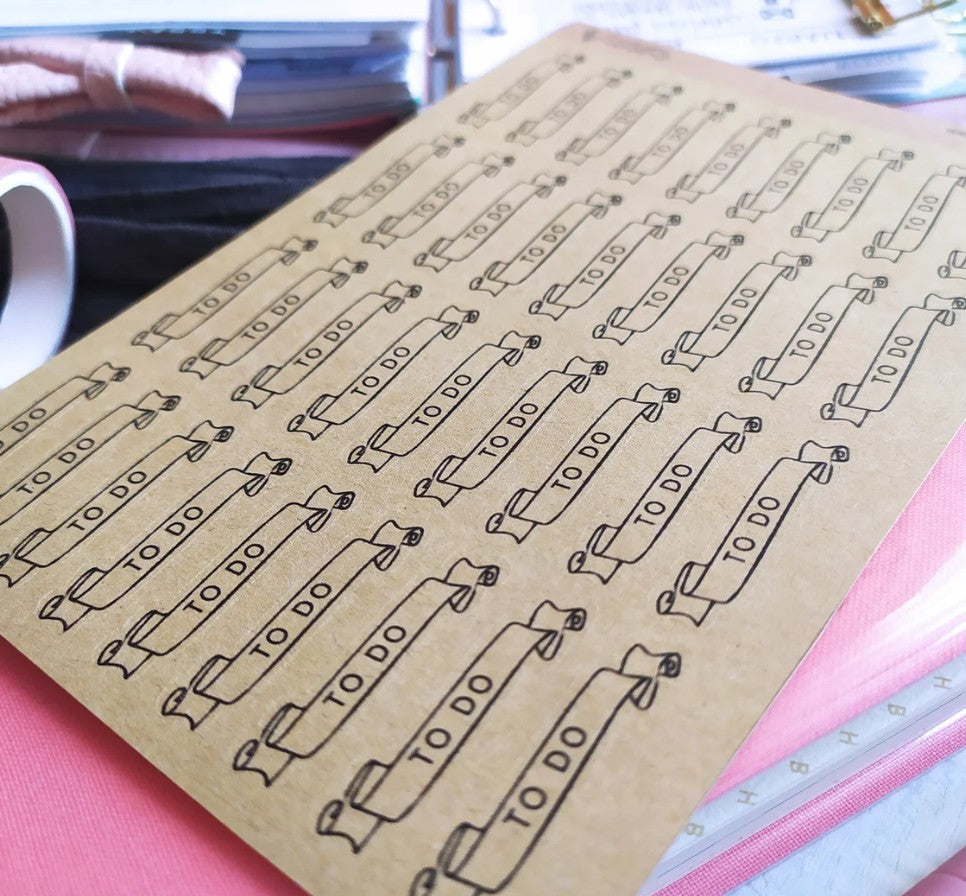 TO DO
TO DO
TO DO
TO DO
TO DO
TO DO
TO DO
TO DO
TO DO
TO DO
TO DO
TO DO
TO DO
TO DO
TO DO
TO DO
TO DO
TO DO
TO DO
TO DO
TO DO
TO DO
TO DO
TO DO
TO DO
TO DO
TO DO
TO DO
TO DO
TO DO
TO DO
TO DO
TO DO
TO DO
TO DO
H B H B H B